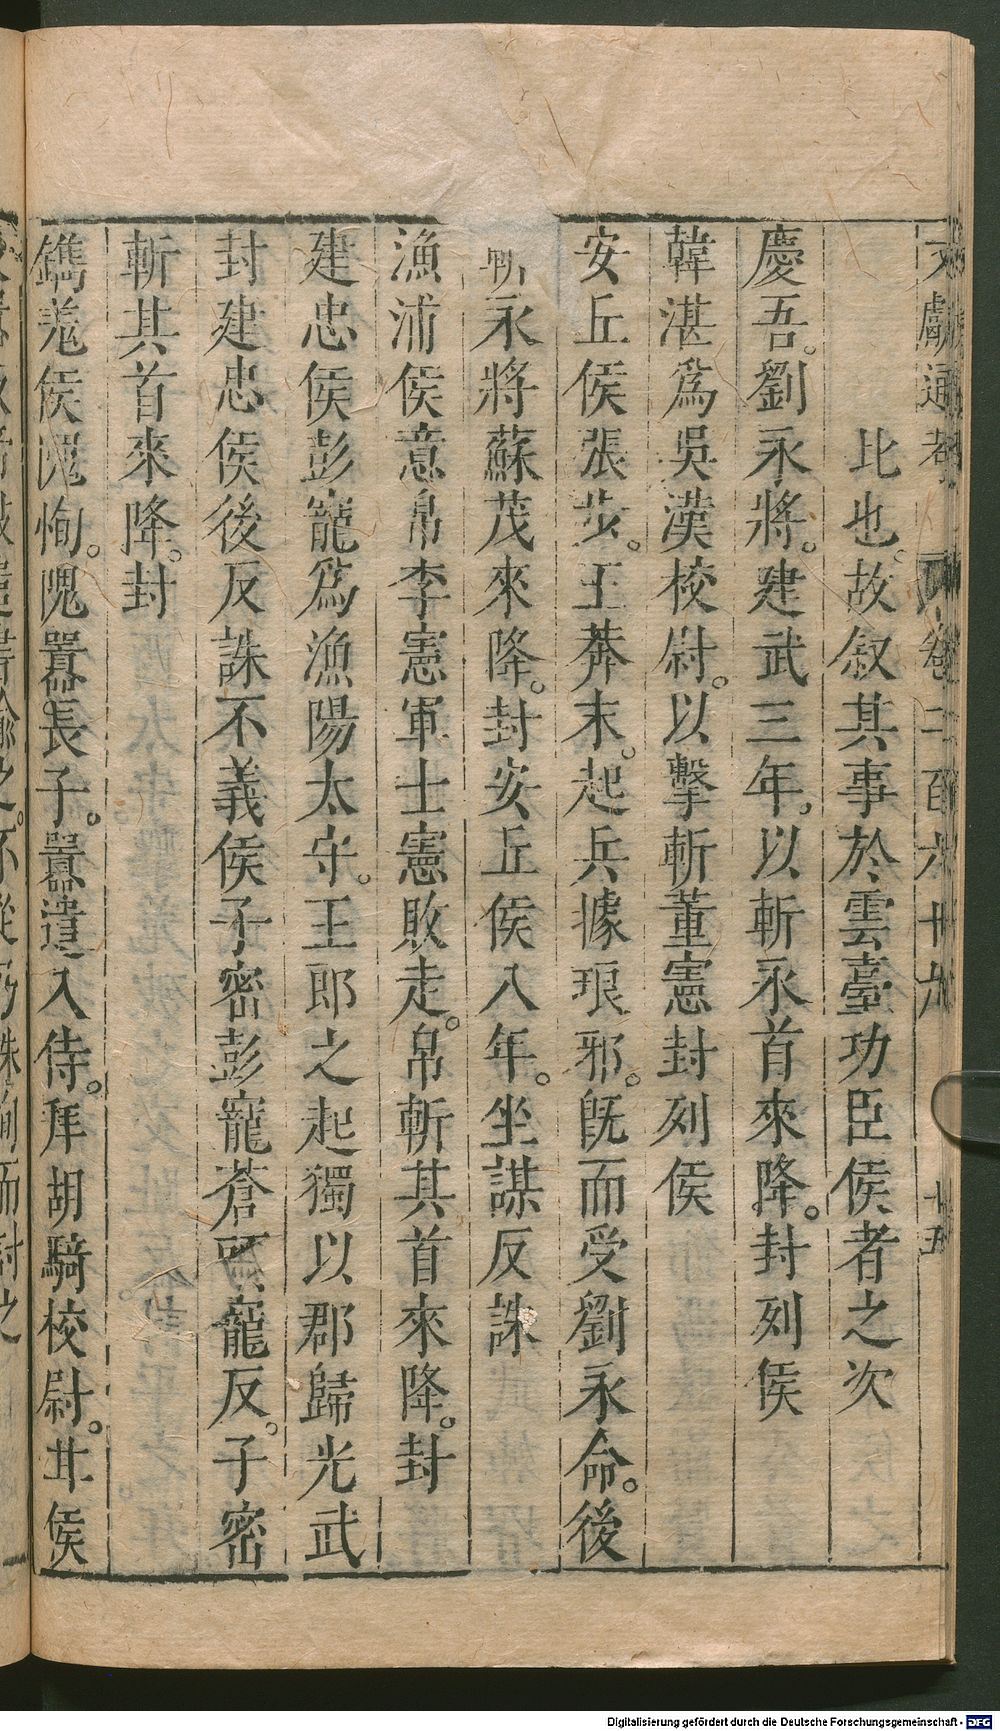 文獻通考 卷二百六十九 十五
比也。故叙其事於雲臺功臣侯者之次
慶吾。劉永將。建武三年。以斬永首來降。封列侯
韓湛爲吳漢校尉。以擊斬董憲封列侯
安丘侯張步。王莽末。起兵據琅邪。旣而受劉永命。後
斬永將蘇茂來降。封安丘侯八年。坐謀反誅
漁浦侯意帛李憲軍士憲敗走。帛斬其首來降。封
建忠侯彭寵爲漁陽太守。王郎之起獨以郡歸光武
封建忠侯後反誅不義侯子密彭寵蒼頭寵反。子密
斬其首來降。封
鐫羌侯隗恂。隗囂長子。囂遣入侍。拜胡騎校尉。封侯
之。不從乃誅恂而封之
Digitalisierung gefördert durch die Deutsche Forschungsgemeinschaft - DFG